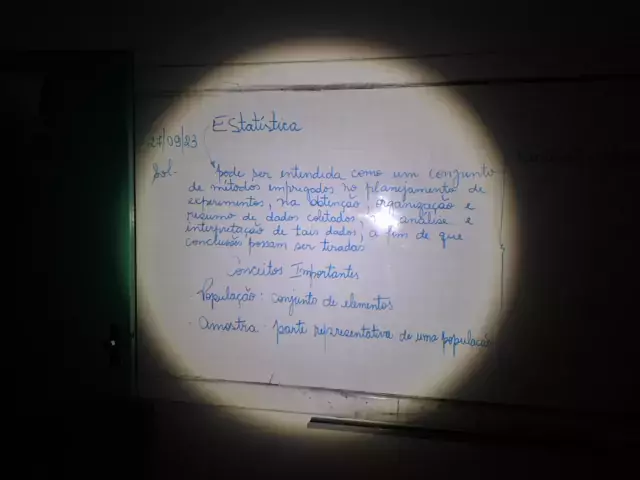 EStatística
27/09/23
"pode ser entendida como um conjunto
de métodos empregados no planejamento de
experimentos, na obtenção, organização e
resumo de dados coletados, análise e
interpretação de tais dados, a fim de que
conclusões possam ser tiradas
Conceitos Importantes
População: conjunto de elementos
· Amostra: parte representativa de uma população